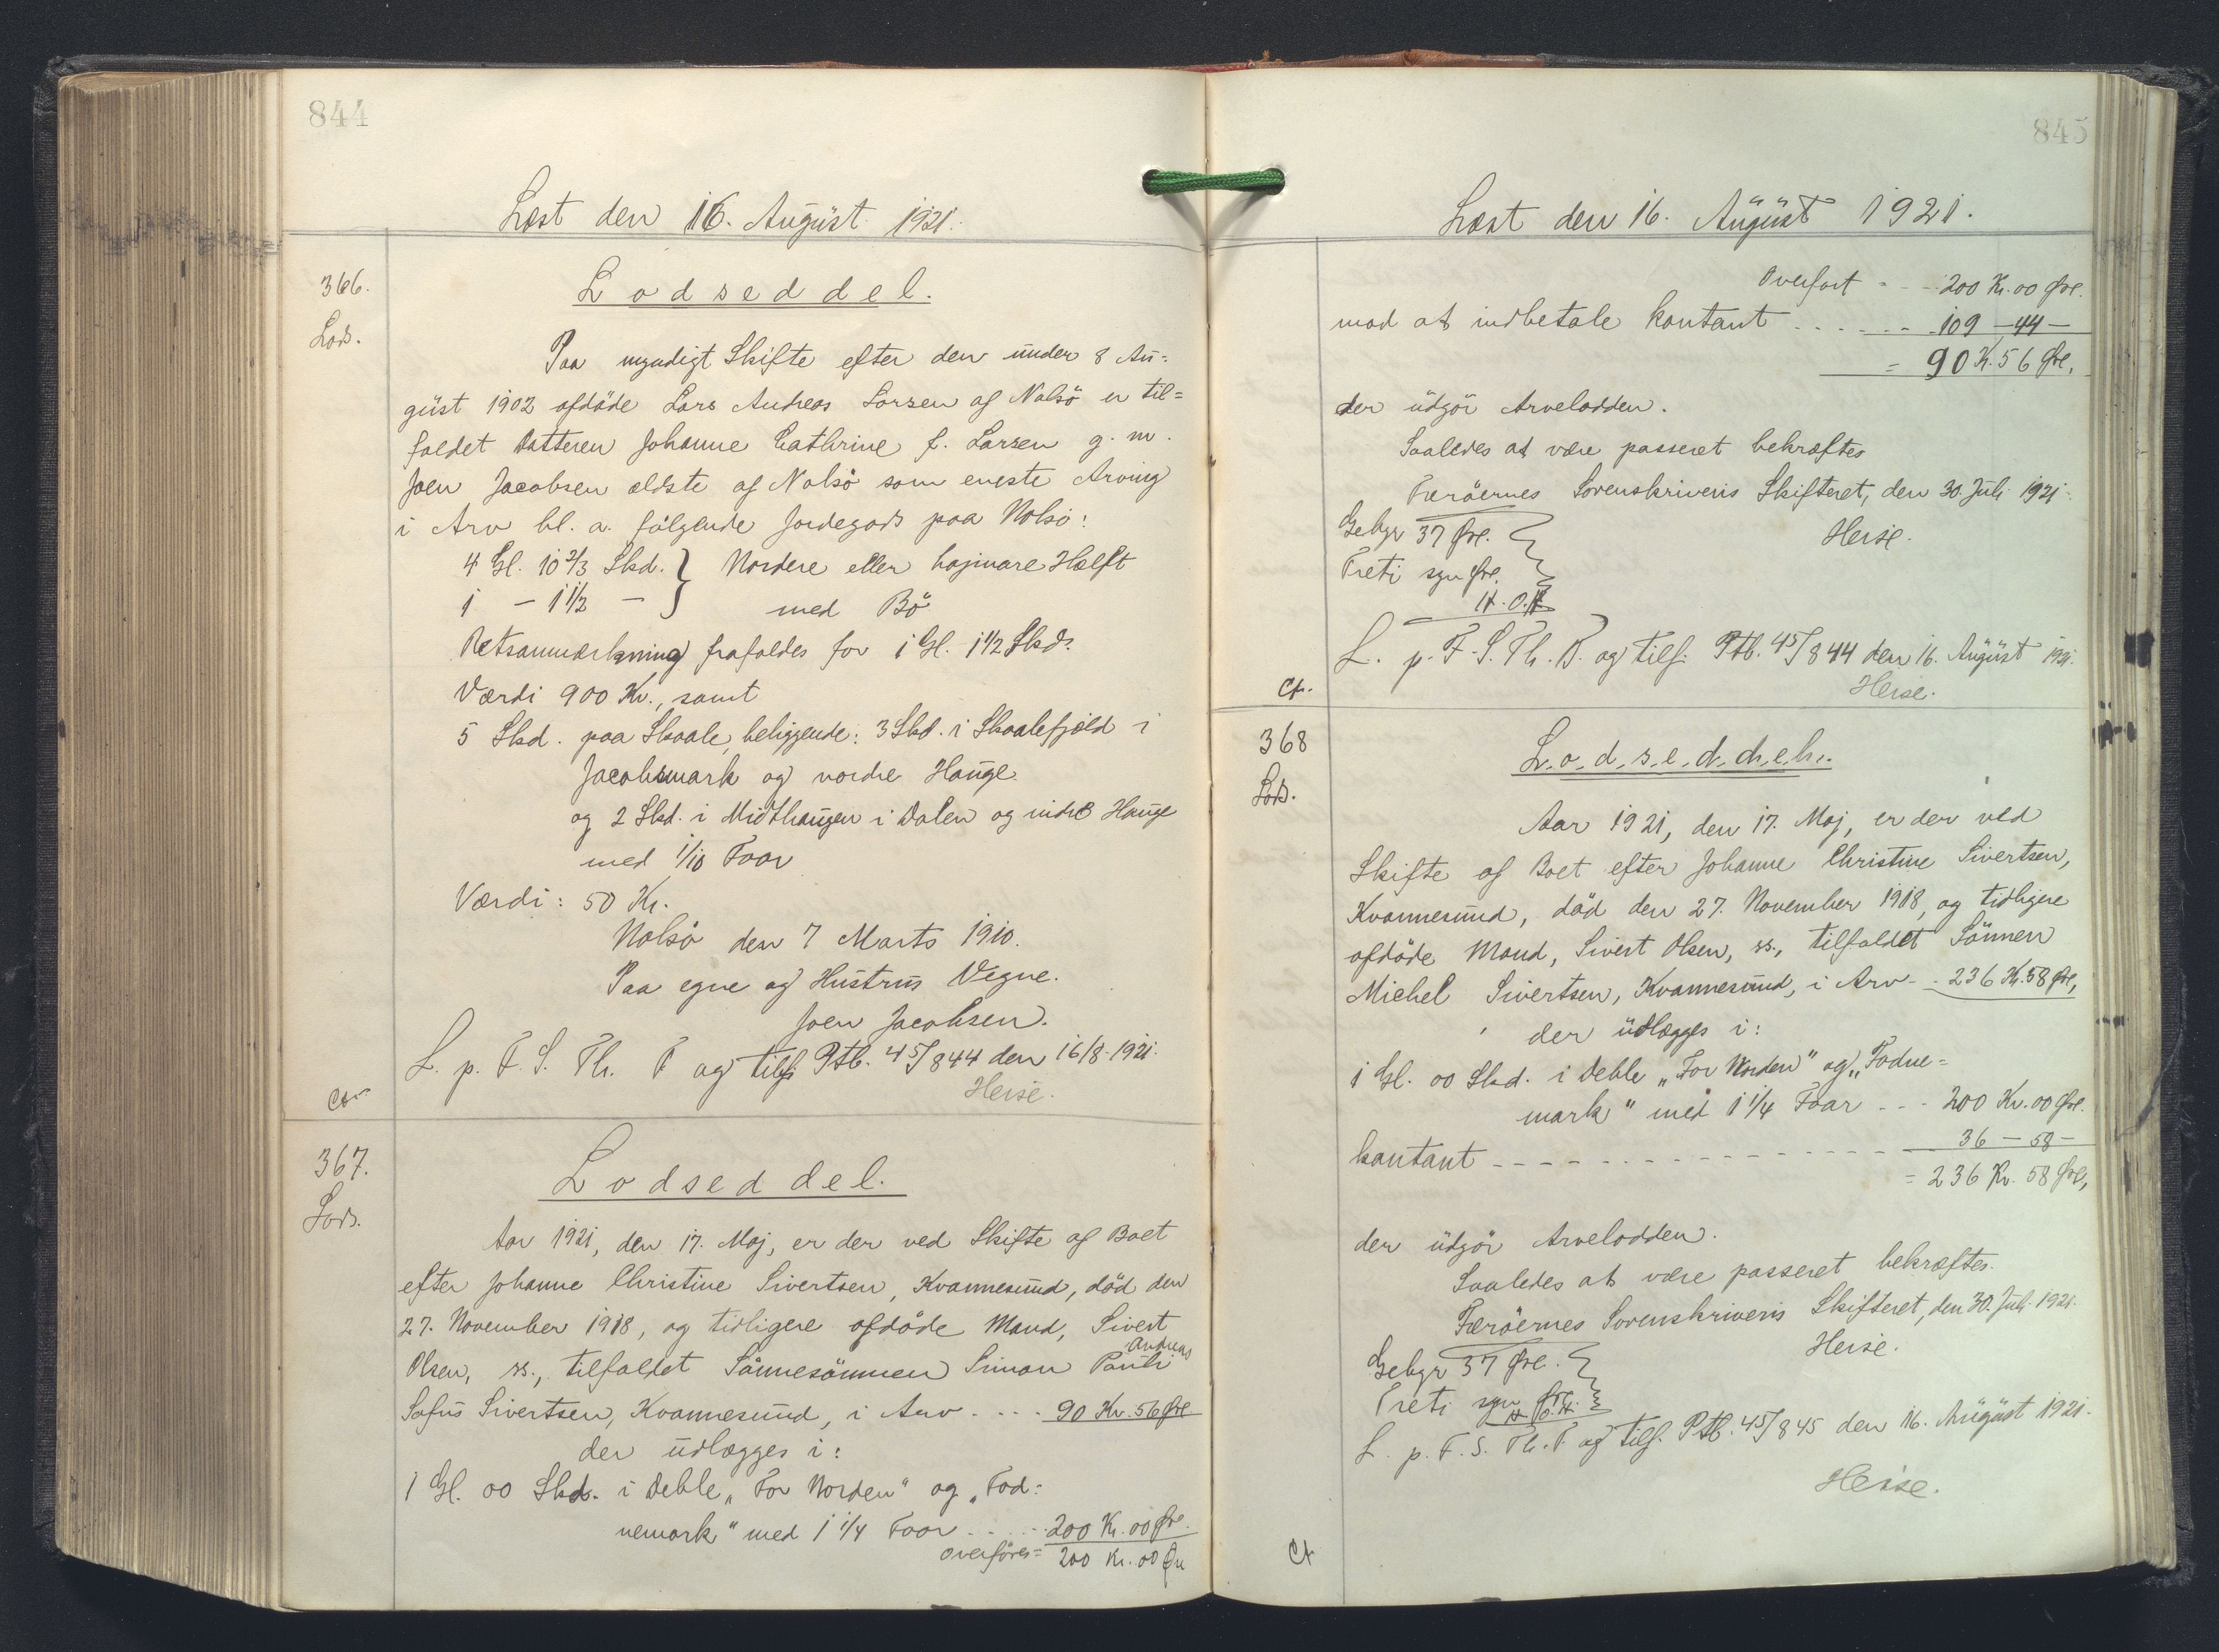 844
Læst den 16. August 1921.
366.
Lods.
Lodseddel.
Paa myndigt Skifte efter den under 8 Au=
gust 1902 afdöde Lars Andreas Larsen af Nolsö er til=
faldet Datteren Johanne Cathrine f. Larsen g. m.
Joen Jacobsen ældste af Nolsö som eneste Arving
i Arv bl. a. fölgende Jordegods paa Nolsö:
4 Gl. 10 2/3 Skd. } Nordere eller hajmare Hælft
1 – 1 1/2 – } med Bö
Retsanmærkning frafaldes for 1 Gl. 1 1/2 Skd.
Værdi 900 Kr., samt
5 Skd. paa Skaale, beliggende: 3 Skd. i Skaalefjæld i
Jacobsmark og nordre Hauge
og 2 Skd. i Midthaugen i Dalen og indre Hauge
med 1/10 Faar
Værdi: 50 Kr.
Nolsö den 7 Marts 1910.
Paa egne og Hustrus Vegne.
Joen Jacobsen.
L. p. F. S. Th. T og tilf. Ptb. 45/844 den 16/8-1921.
Heise.
Ct.
367.
Lods.
Lodseddel.
Aar 1921, den 17. Maj, er der ved Skifte af Boet
efter Johanne Christine Sivertsen, Kvannesund, död den
27. November 1918, og tidligere afdöde Mand, Sivert
Olsen, ss., tilfaldet Sönnesönnen Simon Pauli Andreas
Sofus Sivertsen, Kvannesund, i Arv - - - - 90 Kr. 56 Øre
der udlægges i:
1 Gl. 00 Skd. i Deble "For Norden" og "Fod=
nemark" med 1 1/4 Faar - - - - 200 Kr. 00 Øre.
overföres = 200 Kr. 00 Øre
845
Læst den 16. August 1921.
Overfört - - - 200 Kr. 00 Øre.
mod at indbetale kontant - - - - - 109 – 44 –
= 90 K. 56 Øre,
der udgör Arvelodden.
Saaledes at være passeret bekræftes
Færöernes Sorenskriveris Skifteret, den 30. Juli 1921.
Heise.
Gebyr 37 Øre.
Treti syv Øre.
H. O. H
L. p. F. S. Th. T. og tilf. Ptb. 45/844 den 16. August 1921.
Heise.
Ct.
368
Lods.
Lodseddel.
Aar 1921, den 17. Maj, er der ved
Skifte af Boet efter Johanne Christine Sivertsen,
Kvannesund, död den 27. November 1918, og tidligere
afdöde Mand, Sivert Olsen, ss., tilfaldet Sönnen
Michel Sivertsen, Kvannesund, i Arv - - 236 Kr. 58 Øre,
der udlægges i:
1 Gl. 00 Skd. i Deble "For Norden" og "Fodne=
mark" med 1 1/4 Faar - - - 200 Kr. 00 Øre.
kontant - - - - - - - - - - 36 – 58 –
= 236 Kr. 58 Øre,
der udgör Arvelodden.
Saaledes at være passeret bekræftes.
Færöernes Sorenskriveris Skifteret, den 30. Juli 1921.
Heise.
Gebyr 37 Øre.
Treti syv Øre.
H. O. H.
L. p. F. S. Th. T. og tilf. Ptb. 45/845 den 16. August 1921.
Heise.
Ct